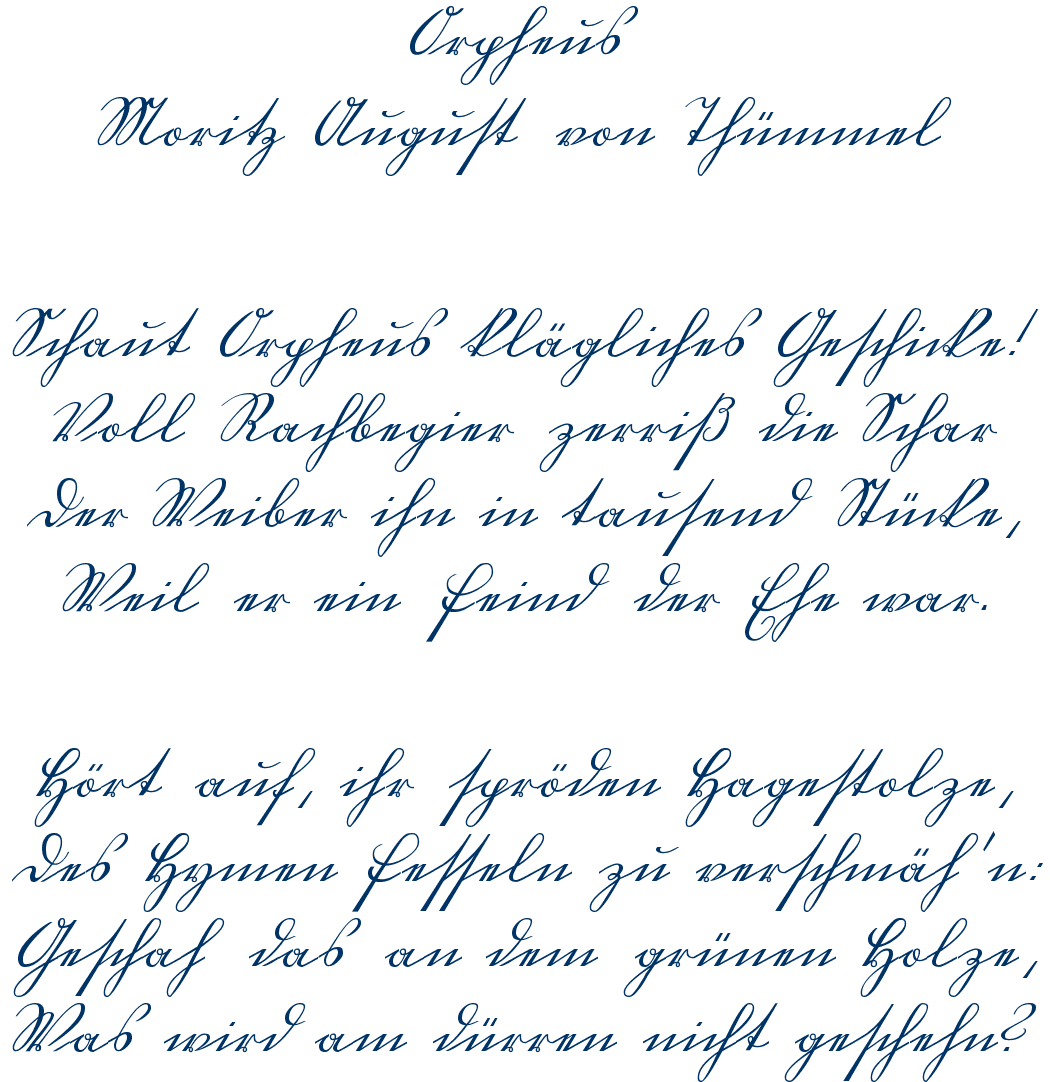 Orpheus
Moritz August von Thümmel
Schaut Orpheus klägliches Geschicke!
Voll Rachbegier zerriß die Schar
Der Weiber ihn in tausend Stücke,
Weil er ein Feind der Ehe war.
Hört auf, ihr spröden Hagestolze,
Des Hymen Fesseln zu verschmäh'n:
Geschah das an dem grünen Holze,
Was wird am dürren nicht geschehn?